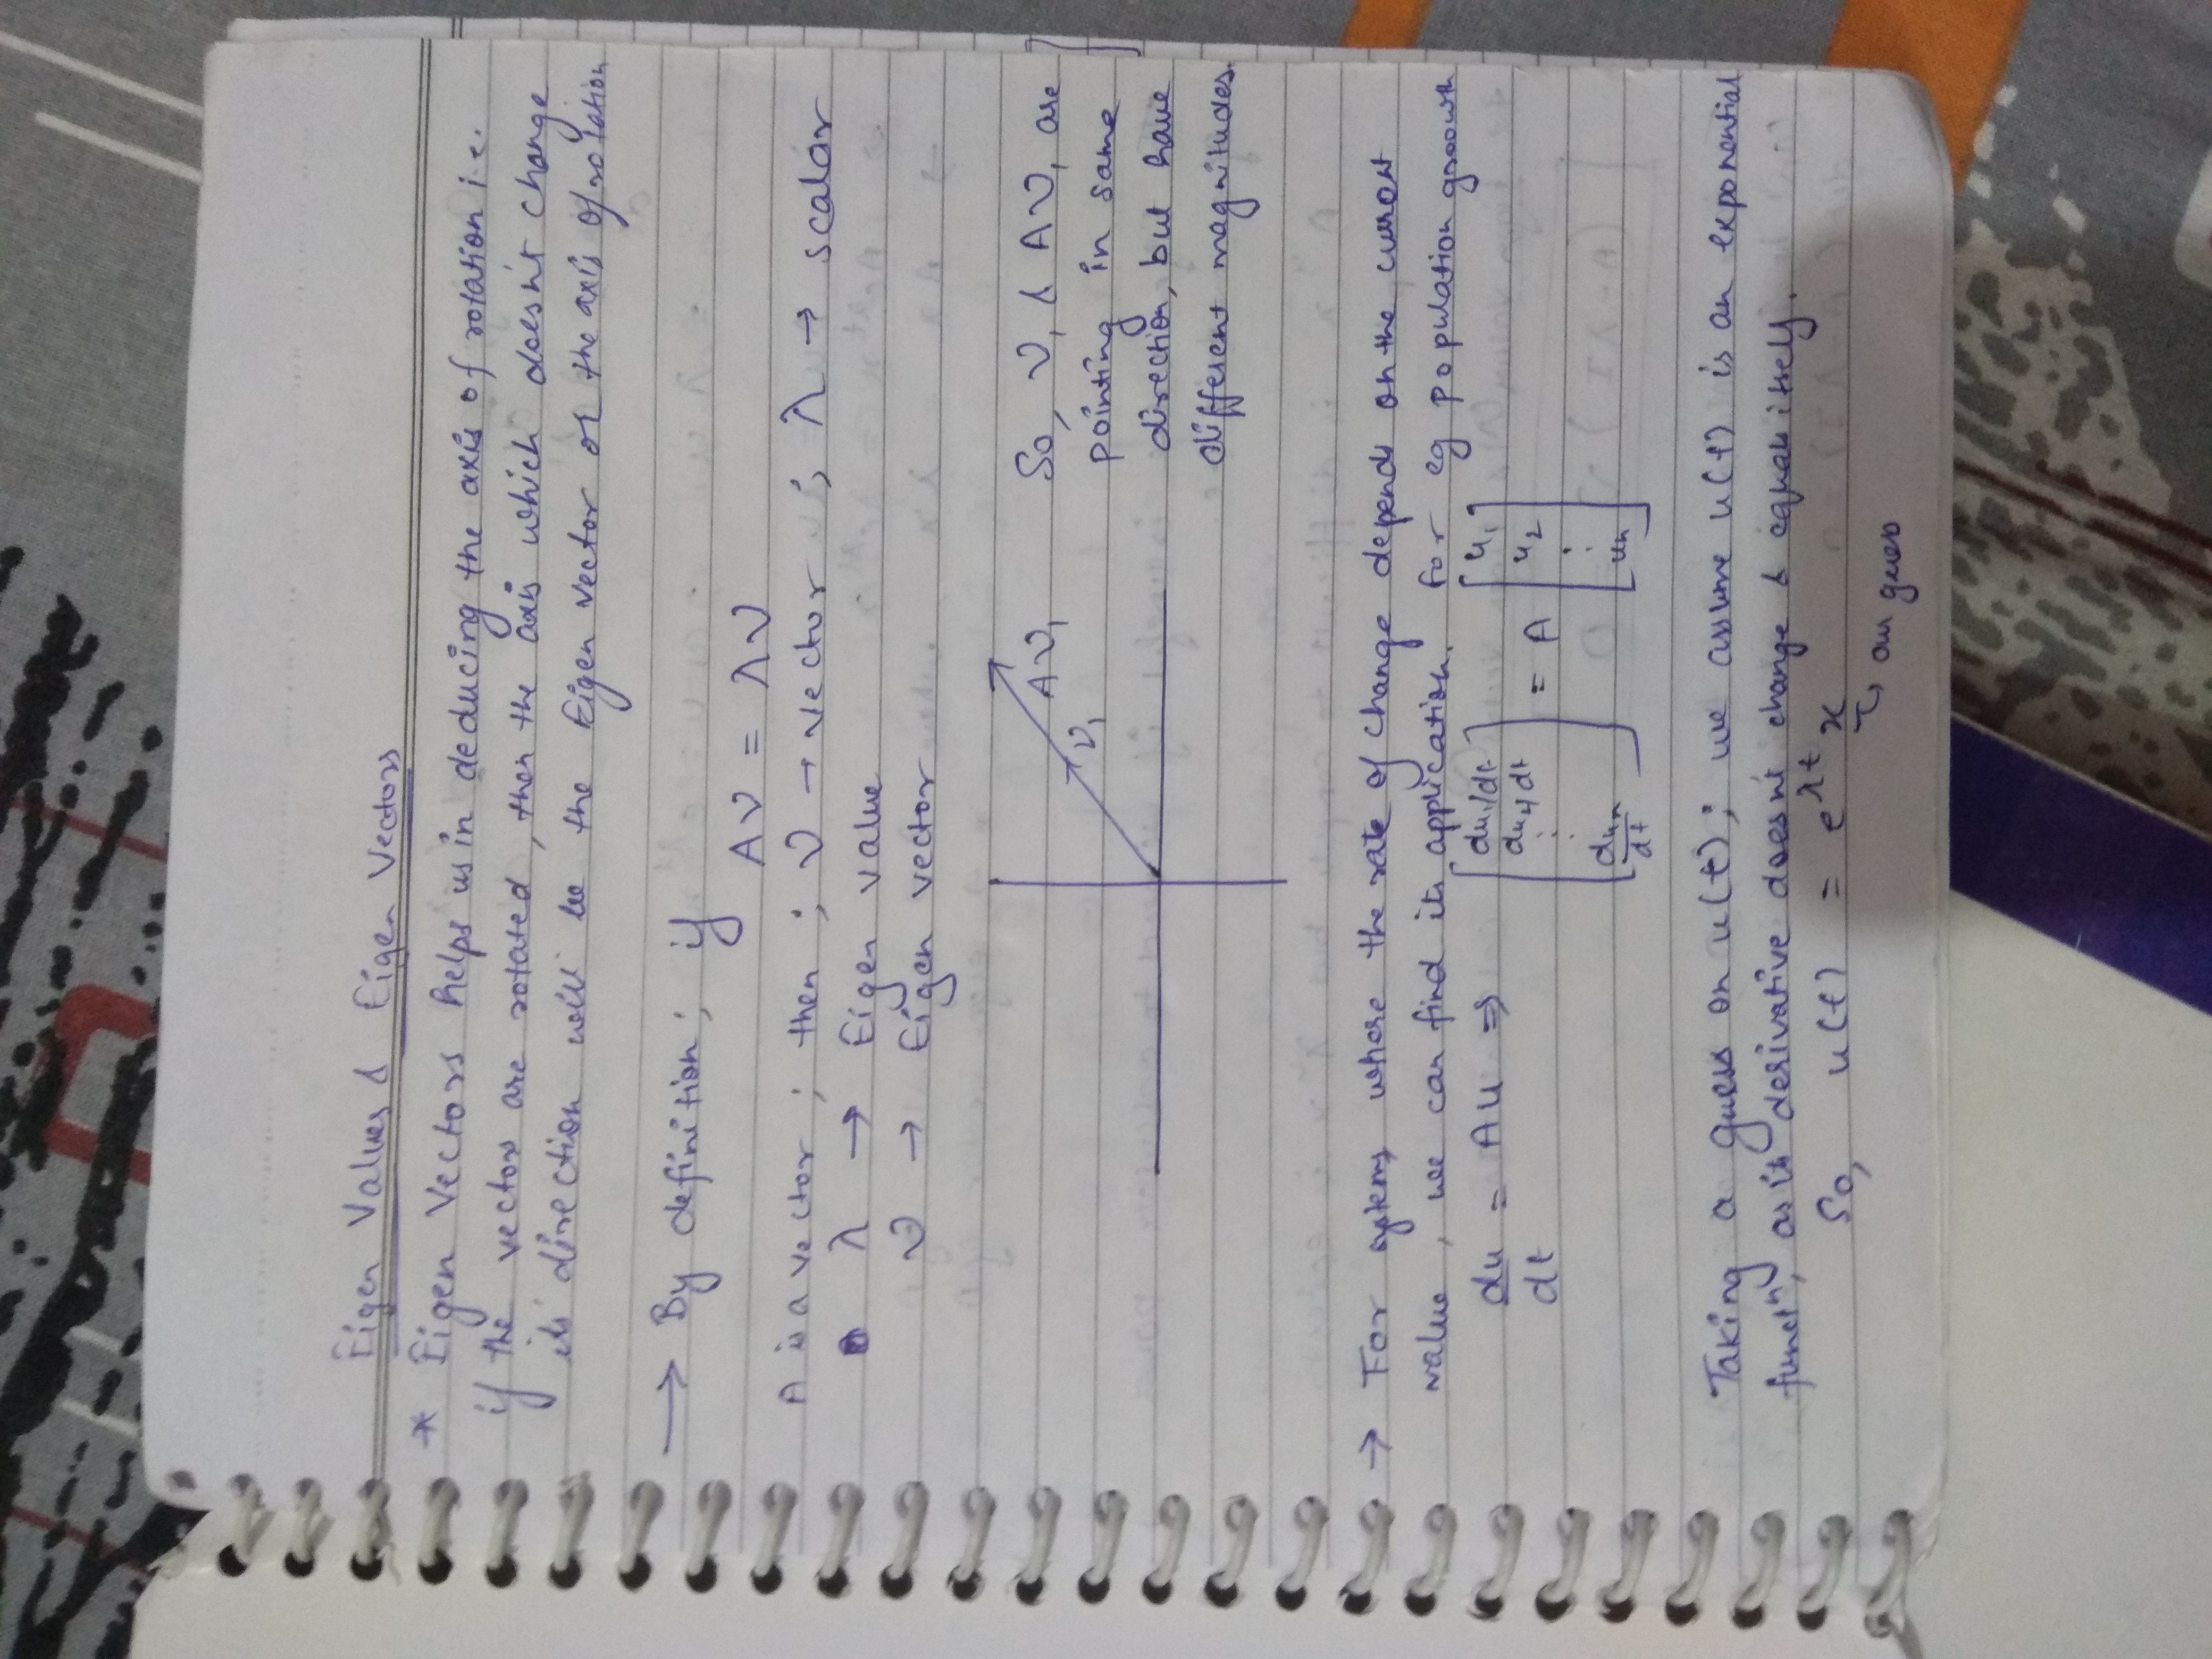 Eigen Values & Eigen Vectors
* Eigen Vectors helps us in deducing the axis of rotation i.e.
if the vectors are rotated, then the axis which doesn't change
its direction will be the Eigen vector or the axis of rotation
→ By definition; if
Av = λv
A is a vector; then; v → vector; λ → scalar
λ → Eigen value
v → Eigen vector
Av₁
v₁
So, v₁ & Av₁ are
pointing in same
direction, but have
different magnitudes.
→ For systems where the rate of change depends on the current
value, we can find its application. For eg population growth
du/dt = Au ⇒ [du₁/dt du₄dt ⋮ duₙ/dt] = A [u₁ u₂ ⋮ uₙ]
Taking a guess on u(t); we assume u(t) is an exponential
functⁿ, as its derivative doesn't change & equals itself.
So, u(t) = e^λt x
↳ our guess